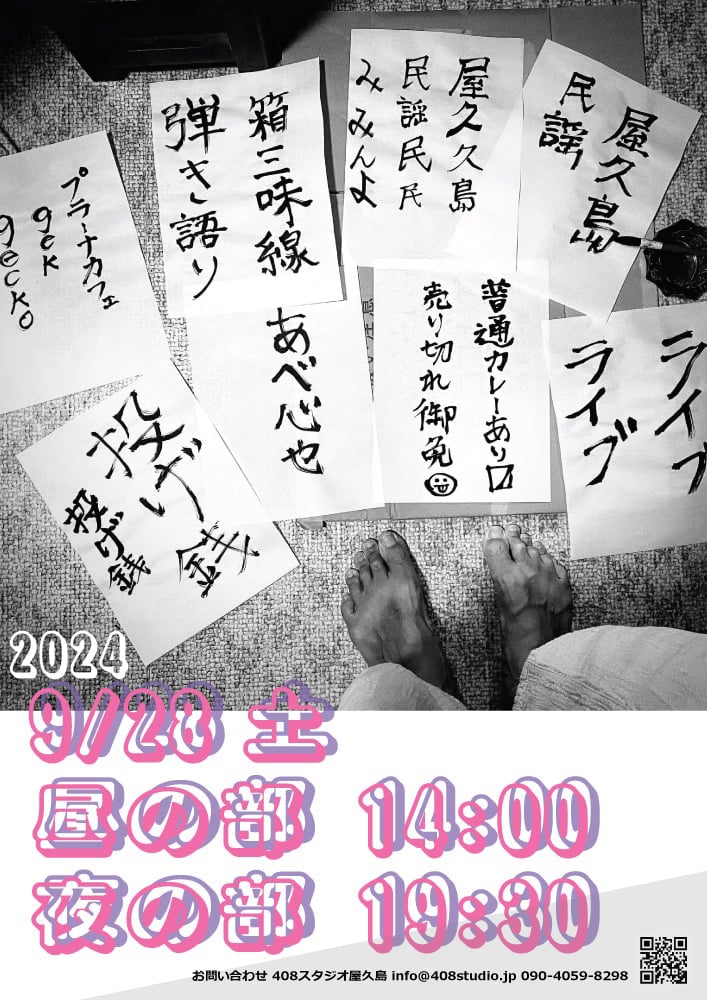 屋久島
民謡
屋久久島
民謡民民
みみんよ
箱三味線
弾き語り
プラーナカフェ
gek
gecko
ライブ
ライブ
普通カレーあり
売り切れ御免
あべ心也
投げ銭
投げ銭
2024
9/28 土
昼の部 14:00
夜の部 19:30
お問い合わせ 408スタジオ屋久島 info@408studio.jp 090-4059-8298